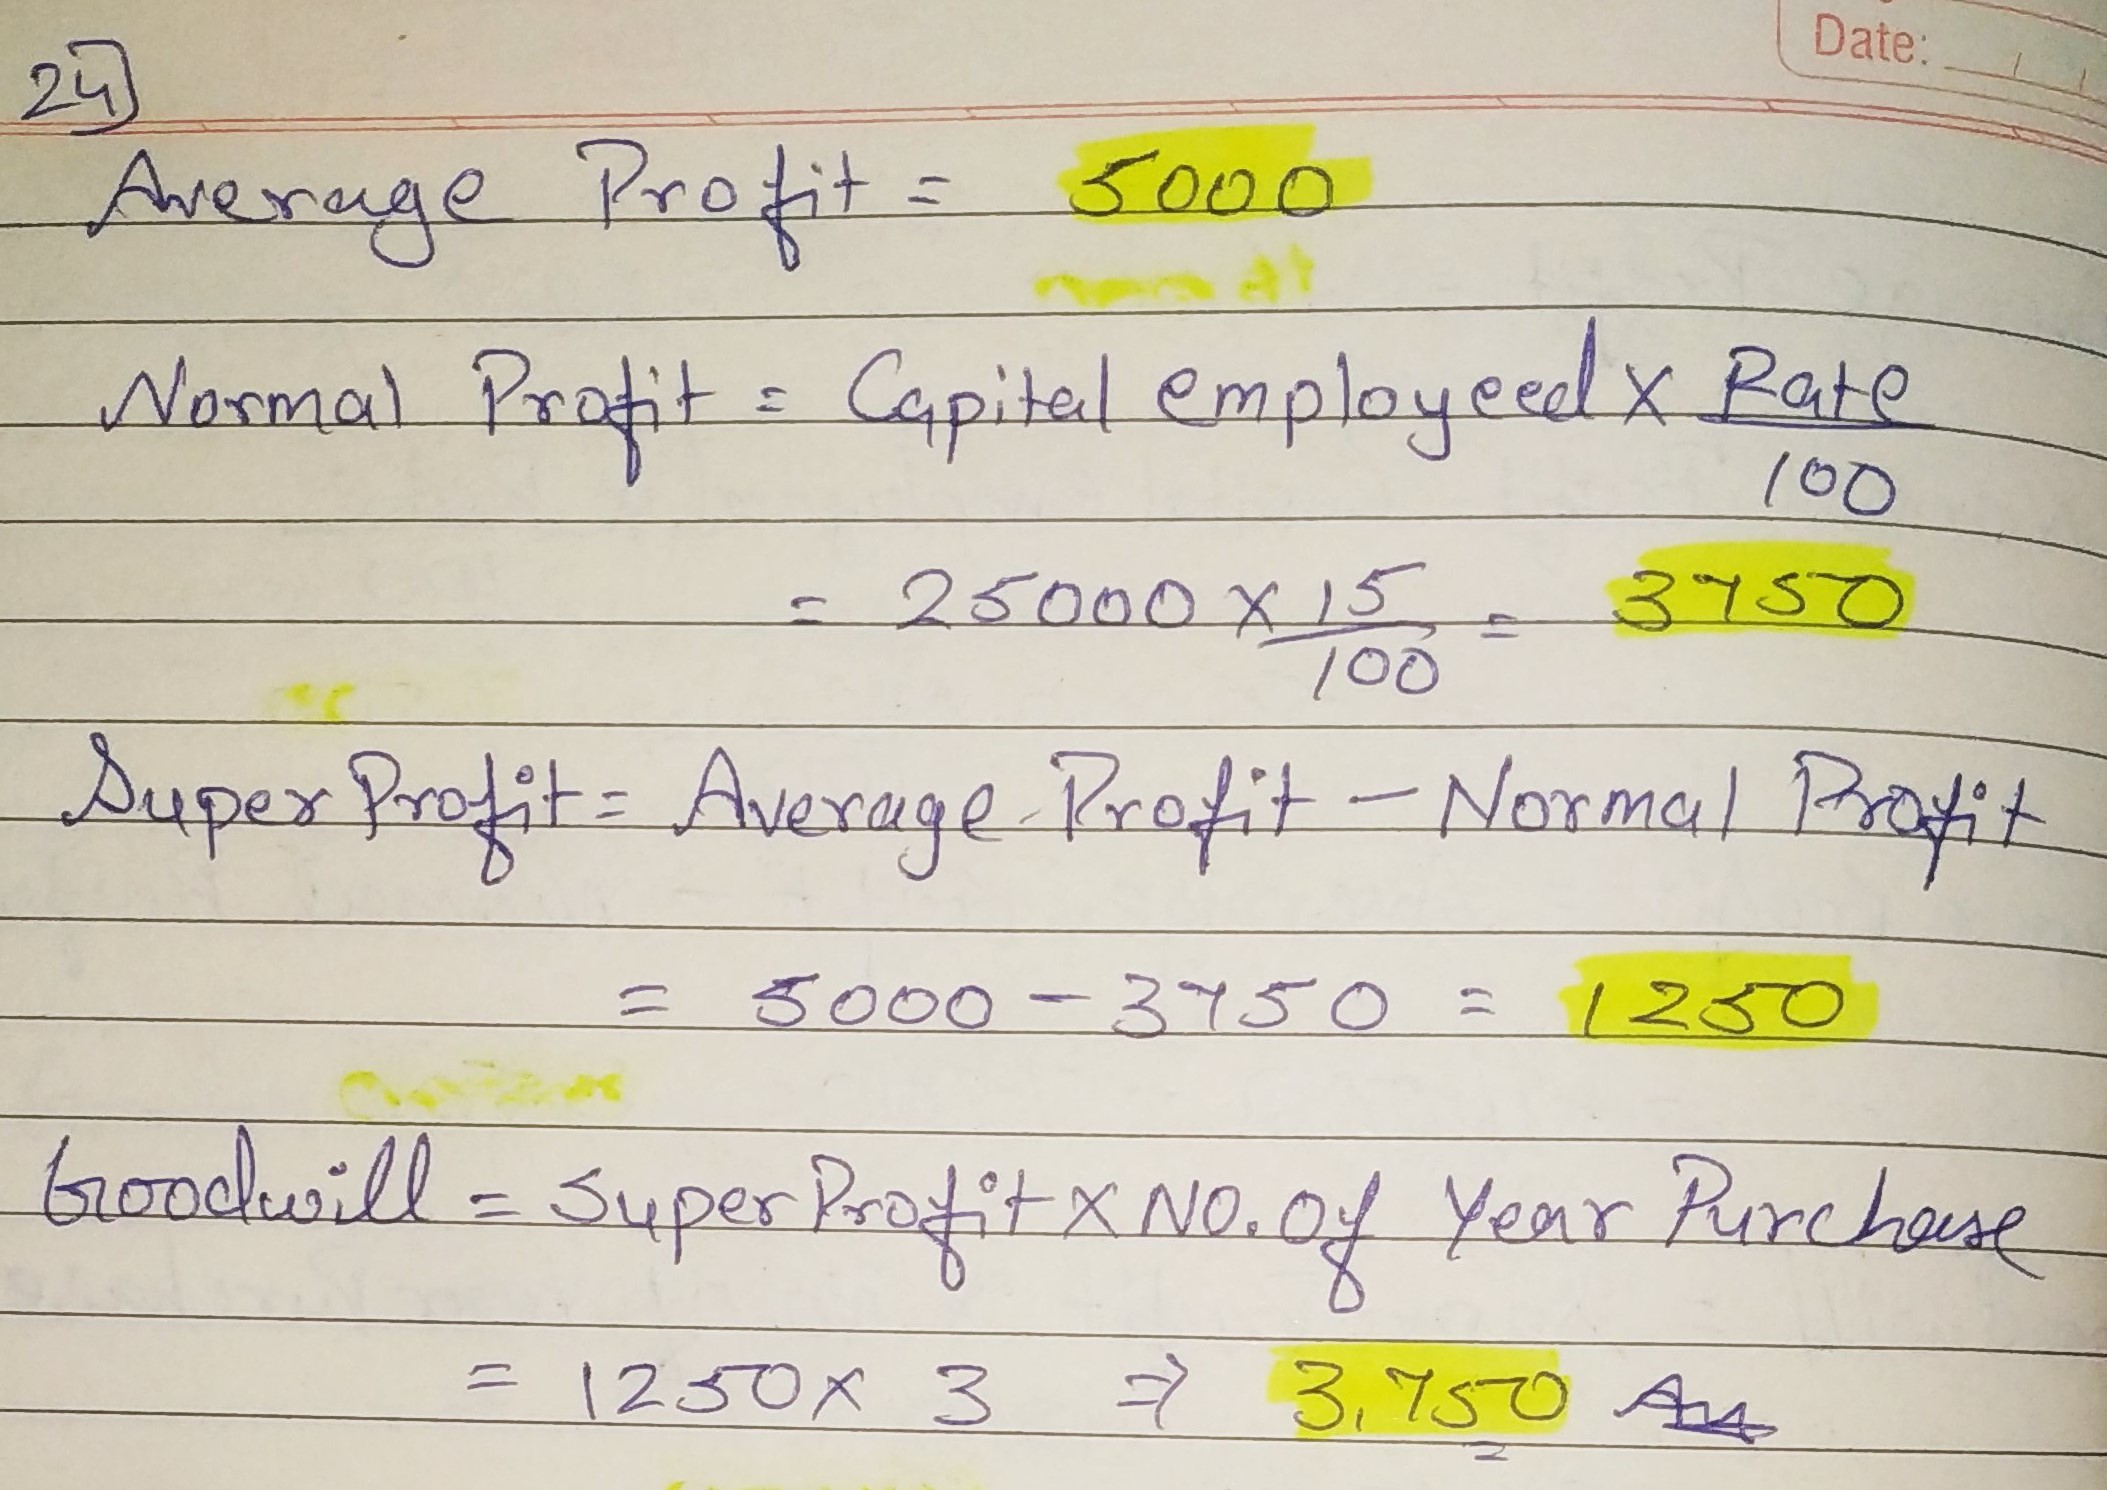 Date:
24)
Average Profit = 5000
Normal Profit = Capital employeed x Rate
100
= 25000 x 15 = 3750
100
Super Profit = Average Profit - Normal Profit
= 5000 - 3750 = 1250
Goodwill = Super Profit x NO. Of Year Purchase
= 1250 x 3 ⇒ 3,750 Ans